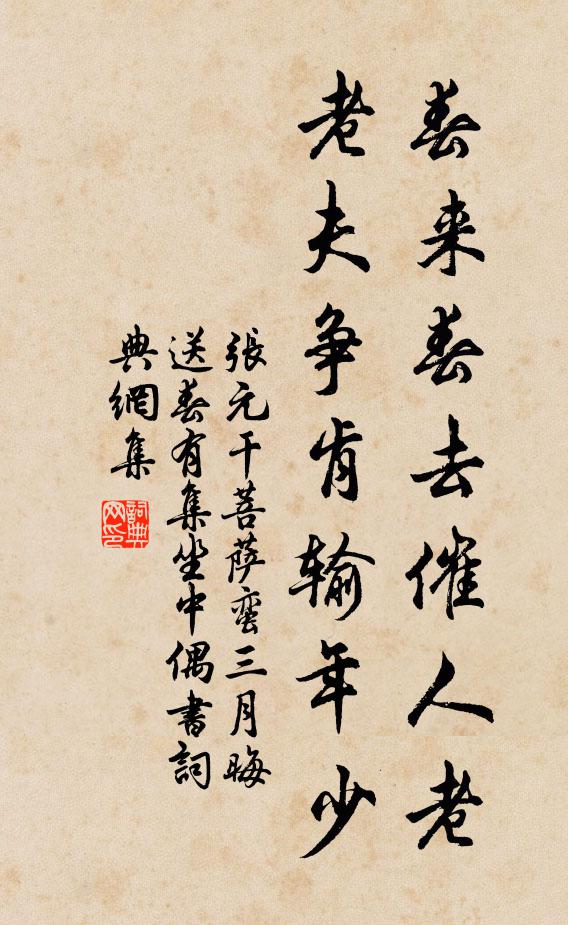 春来春去催人老
老夫争肯输年少
張元干菩萨蛮三月晦
送春有集坐中偶書詞
典網集
詞典网印